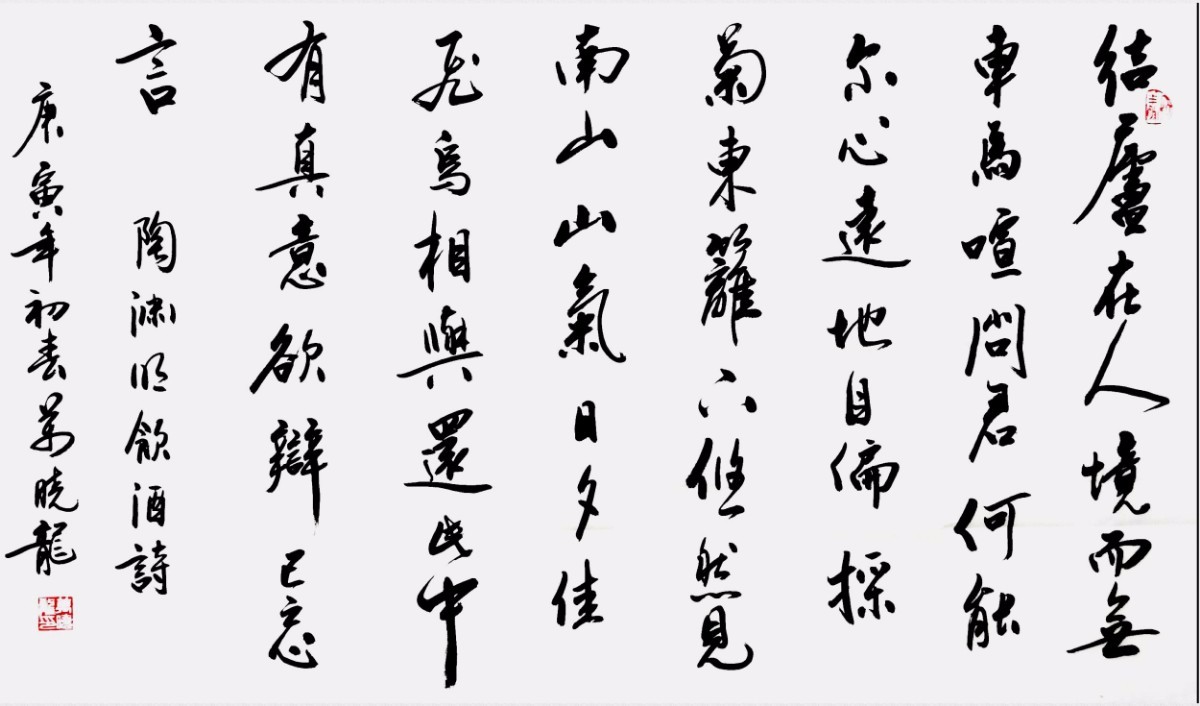 結廬在人境而無
車馬喧問君何能
尔心遠地自偏採
菊東籬下悠然見
南山山氣日夕佳
飛鳥相與還此中
有真意欲辯已忘
言 陶渊明飲酒詩
庚寅年初春萬曉龍